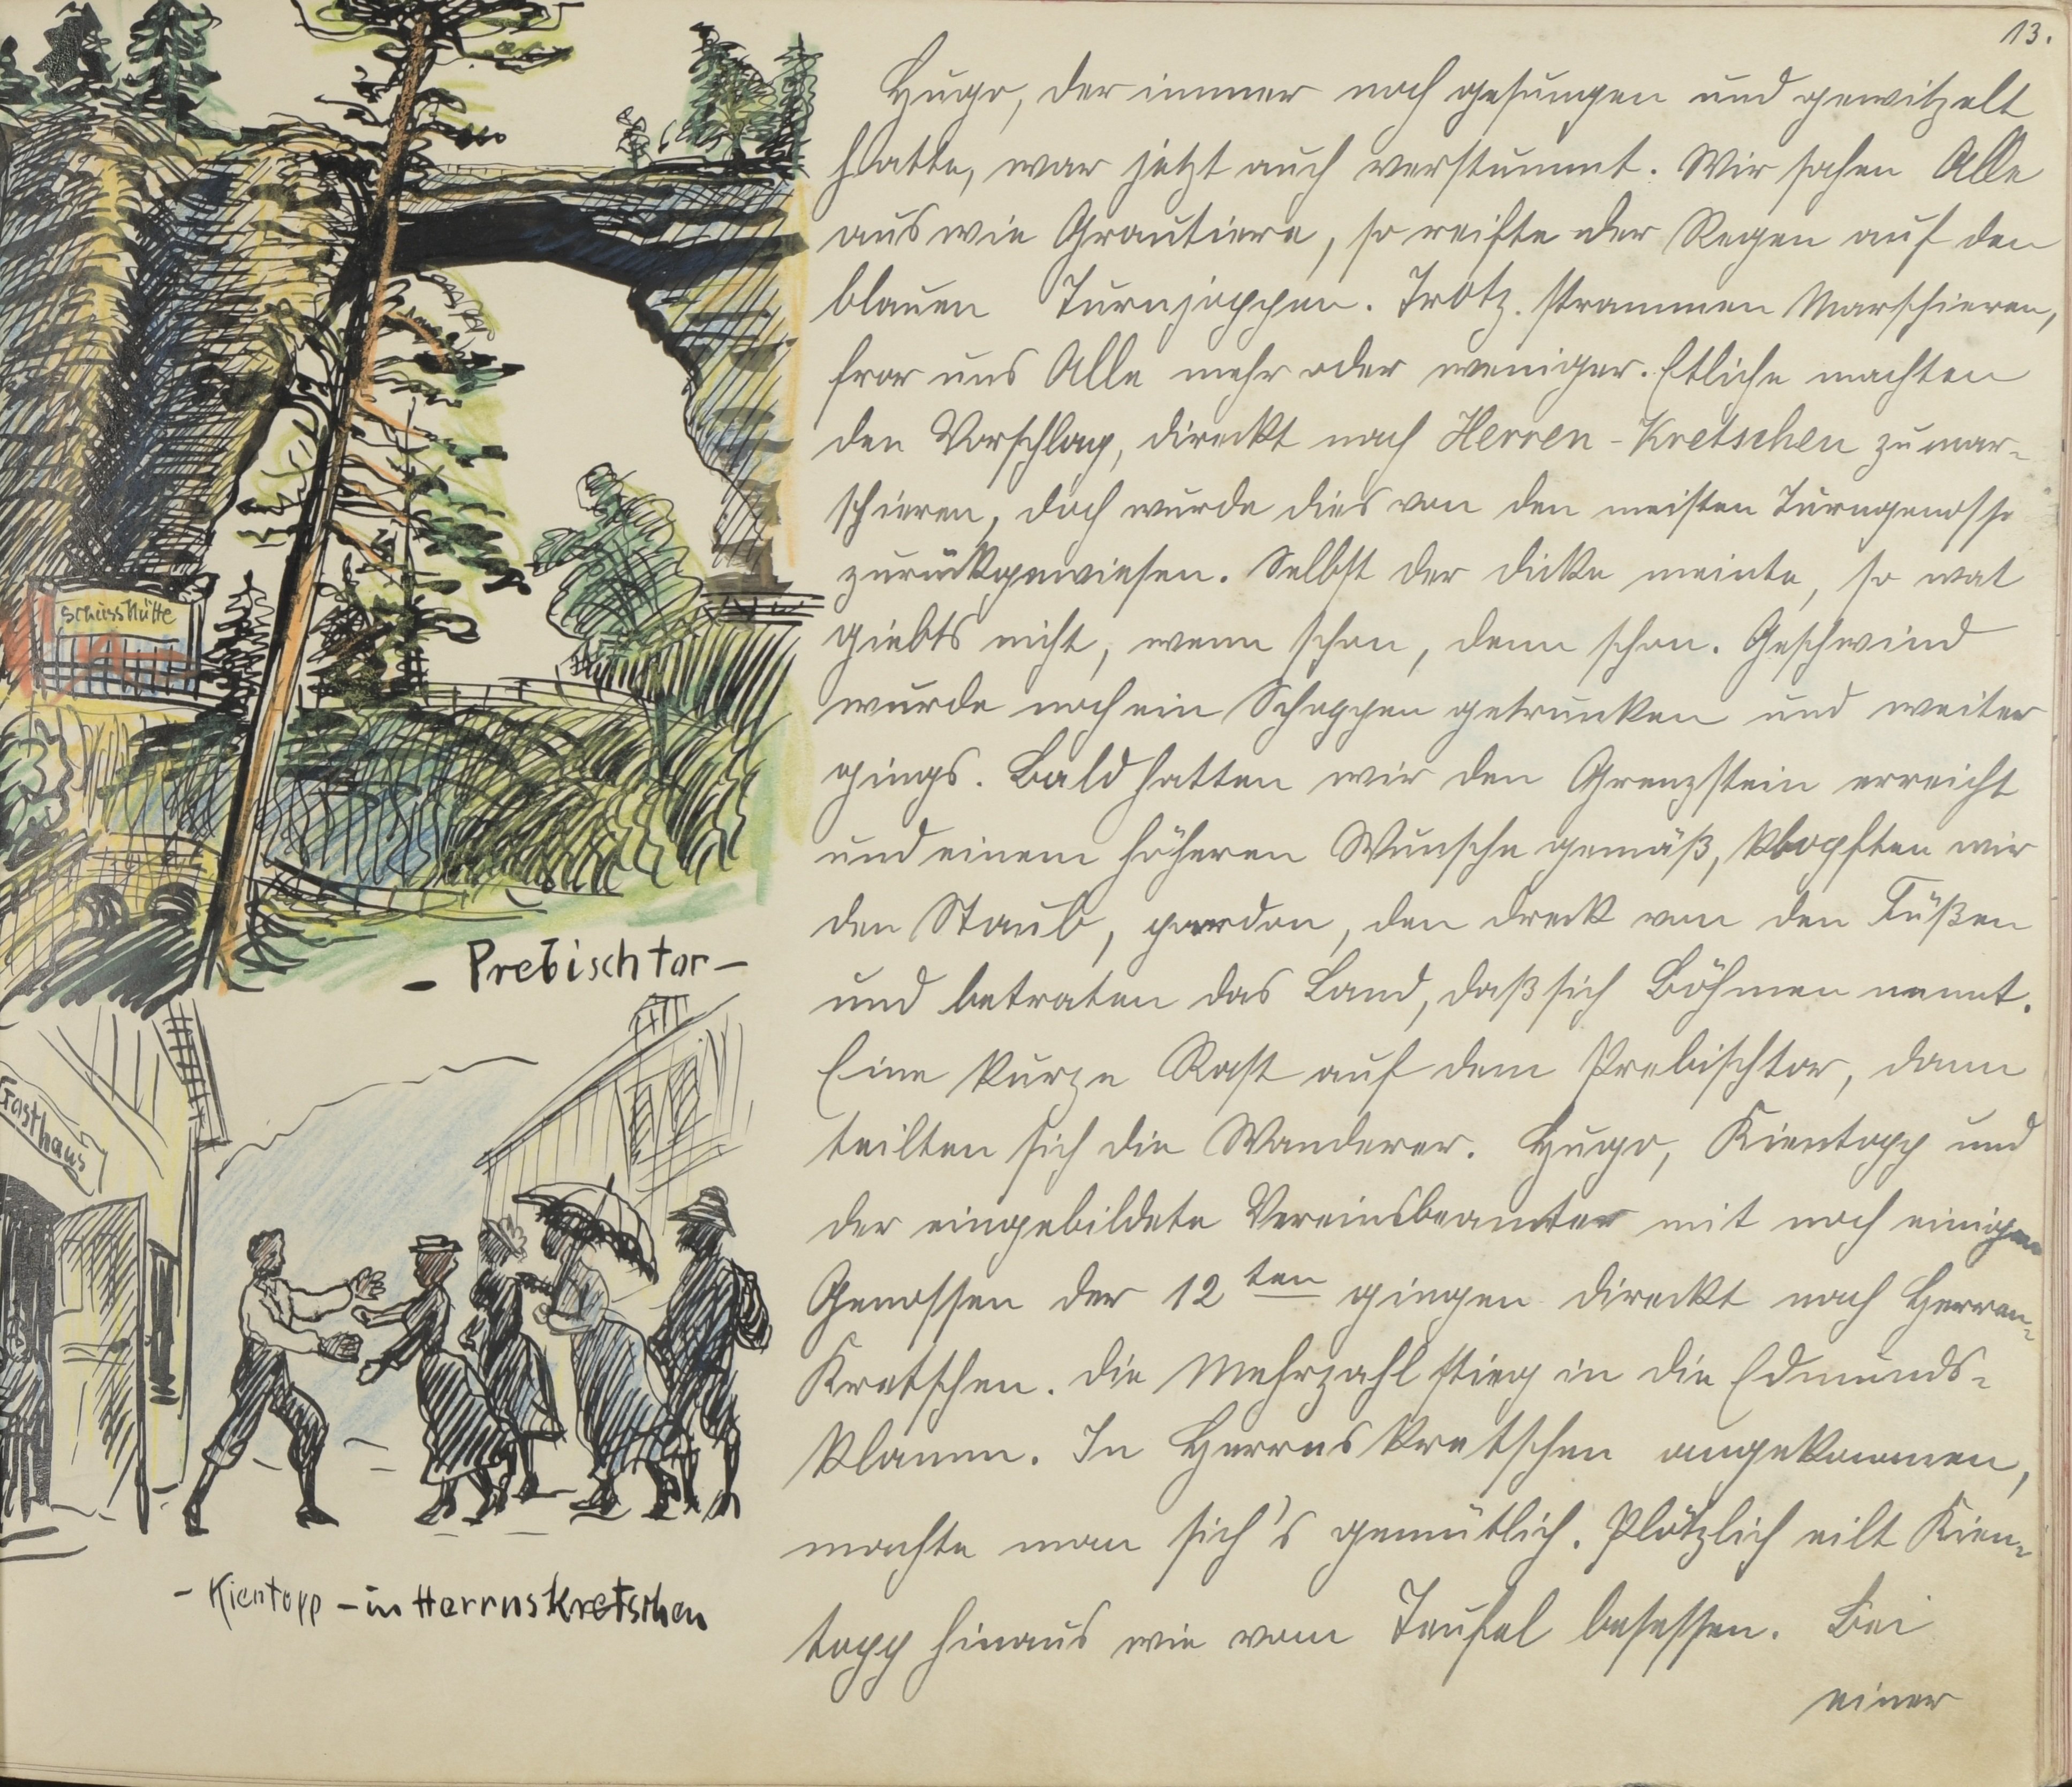 13.
Hugo, der immer noch gesungen und gewitzelt
hatte, war jetzt auch verstummt. Wir sahen Alle
aus wie Grautiere, so reifte der Regen auf den
blauen Turnjoppen. Trotz strammen Marschieren,
fror uns Alle mehr oder weniger. Etliche machten
den Vorschlag, direkt nach Herren-Kretschen zu mar-
schieren, doch wurde dies von den meisten Turngenosse
zurückgewiesen. Selbst der dicke meinte, so wat
giebts nicht, wenn schon, denn schon. Geschwind
wurde noch ein Schoppen getrunken und weiter
gings. Bald hatten wir den Grenzstein erreicht
und einem höheren Wunsche gemäß, klopften wir
den Staub, pardon, den dreck von den Füßen
und betraten das Land, daß sich Böhmen nennt.
Eine kurze Rast auf dem Prebischtor, dann
teilten sich die Wanderer. Hugo, Kientopp und
der eingebildete Vereinsbeamter mit noch einigen
Genossen der 12ten gingen direkt nach Herren-
Kretschen. die Mehrzahl stieg in die Edmunds-
klamm. In Herrnskretschen angekommen,
machte man sich's gemütlich. Plötzlich eilt Kien-
topp hinaus wie vom Teufel besessen. Bei
einer
Schusshütte
- Prebischtor -
Gasthaus
- Kientopp - in Herrnskretschen